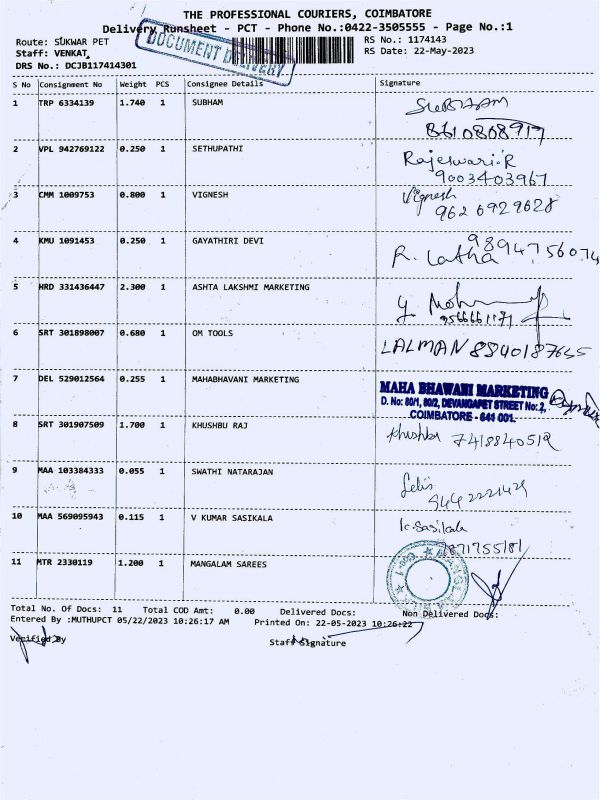 THE PROFESSIONAL COURIERS, COIMBATORE
Delivery Runsheet - PCT - Phone No.:0422-3505555 - Page No.:1
DOCUMENT DELIVERY
Route: SUKWAR PET RS No.: 1174143
Staff: VENKAT, RS Date: 22-May-2023
DRS No.: DCJB117414301
S No Consignment No Weight PCS Consignee Details Signature
1 TRP 6334139 1.740 1 SUBHAM SUBHAM
8610808917
2 VPL 942769122 0.250 1 SETHUPATHI Rajeswari.R
9003403967
3 CMM 1009753 0.800 1 VIGNESH Vignesh
9626929628
4 KMU 1091453 0.250 1 GAYATHIRI DEVI R. Latha 9894756074
5 HRD 331436447 2.300 1 ASHTA LAKSHMI MARKETING
9566661171
6 SRT 301898007 0.680 1 OM TOOLS LALMAN 8840187655
7 DEL 529012564 0.255 1 MAHABHAVANI MARKETING MAHA BHAWANI MARKETING
D. No: 80/1, 80/2, DEVANGAPET STREET No: 2,
COIMBATORE - 641 001.
8 SRT 301907509 1.700 1 KHUSHBU RAJ Khushbu 7418840519
9 MAA 103384333 0.055 1 SWATHI NATARAJAN
9442221429
10 MAA 569095943 0.115 1 V KUMAR SASIKALA K.Sasikala
9871755181
11 MTR 2330119 1.200 1 MANGALAM SAREES
Total No. Of Docs: 11 Total COD Amt: 0.00 Delivered Docs: Non Delivered Docs:
Entered By :MUTHUPCT 05/22/2023 10:26:17 AM Printed On: 22-05-2023 10:26:22
Verified By Staff Signature